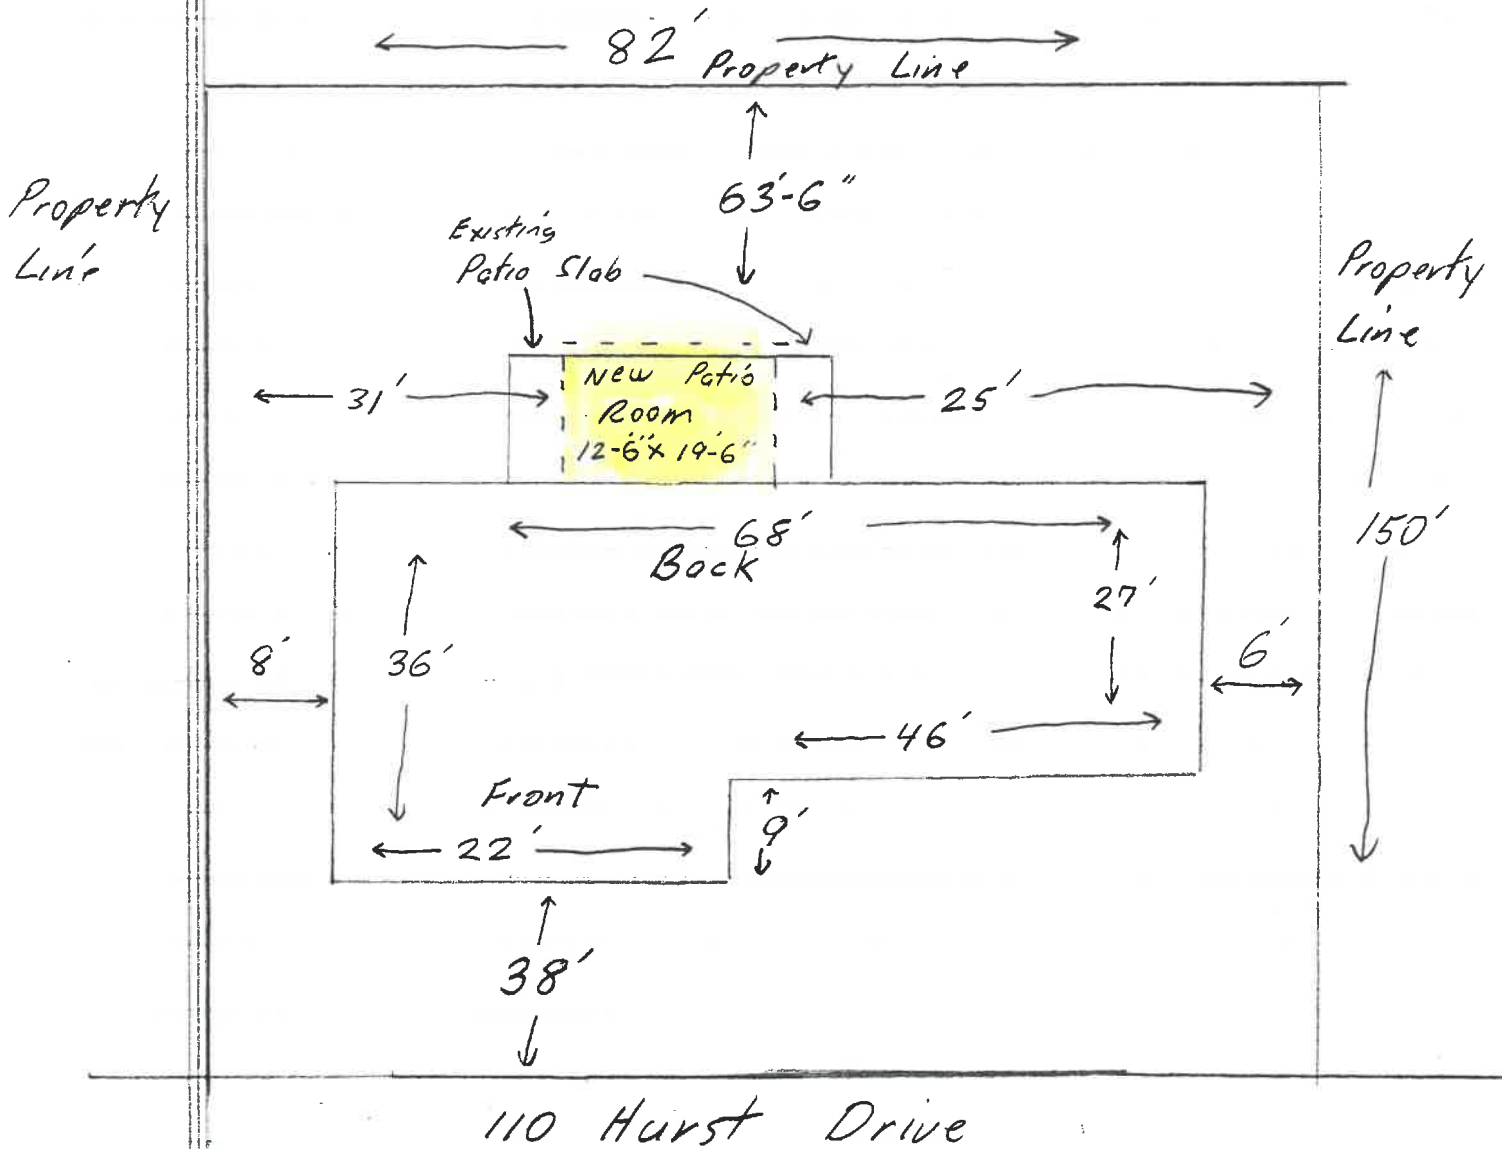 82'
Property Line
63'-6"
Property
Line
Existing
Patio Slab
Property
Line
New Patio
Room
12-6" x 19'-6"
31'
25'
68'
Back
150'
27'
8'
36'
6'
46'
Front
22'
9'
38'
110 Hurst Drive